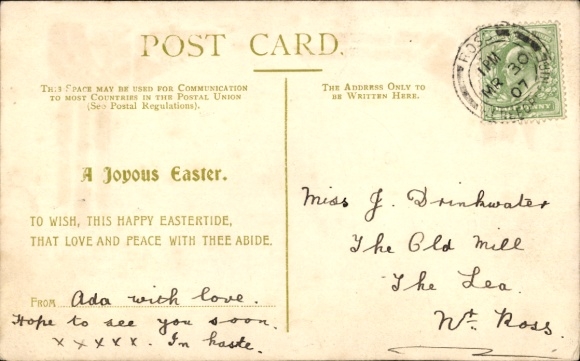 POST CARD.
THIS SPACE MAY BE USED FOR COMMUNICATION
TO MOST COUNTRIES IN THE POSTAL UNION
(See Postal Regulations).
THE ADDRESS ONLY TO
BE WRITTEN HERE.
1 PM
MR 30
07
A Joyous Easter.
TO WISH, THIS HAPPY EASTERTIDE,
THAT LOVE AND PEACE WITH THEE ABIDE.
FROM Ada with love.
Hope to see you soon.
x x x x x. In haste.
Miss J. Drinkwater
The Old Mill
The Lea.
Nr. Ross.